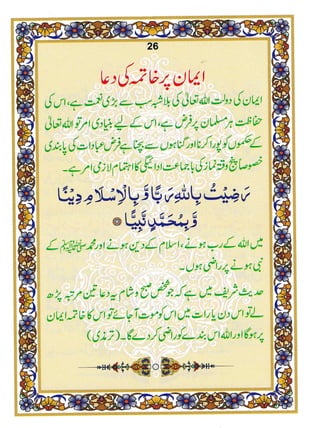 26
ایمان پر خاتمہ کی دعا
ایمان کی دولت اللہ تعالیٰ کی بلاشبہ سب سے بڑی نعمت ہے، اس کی
حفاظت ہر مسلمان پر فرض ہے، اس کے لیے بنیادی امر تو اللہ تعالیٰ
کے حکموں کو پورا کرنا اور گناہوں سے بچنا ہے فرض عبادات کی پابندی
خصوصاً پنج وقتہ نماز کی باجماعت ادائیگی کا اہتمام لازمی امر ہے۔
رَضِيْتُ بِاللّٰهِ رَبًّا وَّ بِالْاِسْلَامِ دِيْنًا
وَّ بِمُحَمَّدٍ نَّبِيًّا
میں اللہ کے رب ہونے، اسلام کے دین ہونے اور محمد ﷺ کے
نبی ہونے پر راضی ہوں۔
حدیث شریف میں ہے کہ جو شخص صبح و شام یہ دعا تین مرتبہ پڑھ
لے تو اس دن یا رات میں اس کو موت آ جائے تو اس کا خاتمہ ایمان
پر ہوگا اور اللہ اس بندے کو راضی کر دے گا۔ (ترمذی)